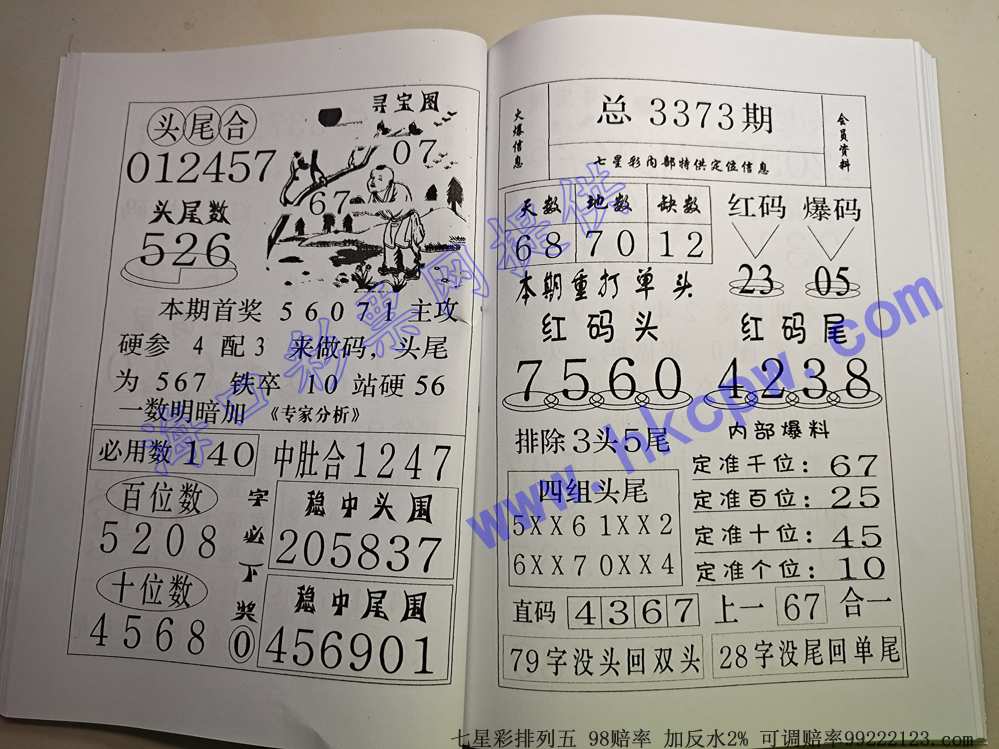 头尾合
012457
头尾数
526
寻宝图
07
67
本期首奖 56071 主攻
硬参 4 配3 来做码，头尾
为 567 铁卒 10 站硬 56
一数明暗加 《专家分析》
必用数 140
中肚合1247
百位数
5208
十位数
4568
字必下奖
0
稳中头围
205837
稳中尾围
456901
火爆信息
总 3373期
七星彩内部特供定位信息
会员资料
天数 地数 缺数
68 70 12
红码 爆码
23 05
本期重打单头
红码头
7560
红码尾
4238
排除3头5尾
四组头尾
5XX6 1XX2
6XX7 0XX4
内部爆料
定准千位：67
定准百位：25
定准十位：45
定准个位：10
直码 4367 上一 67 合一
79字没头回双头
28字没尾回单尾
海口彩票网提供
www.hkcpw.com
七星彩排列五 98赔率 加反水2% 可调赔率99222123.com